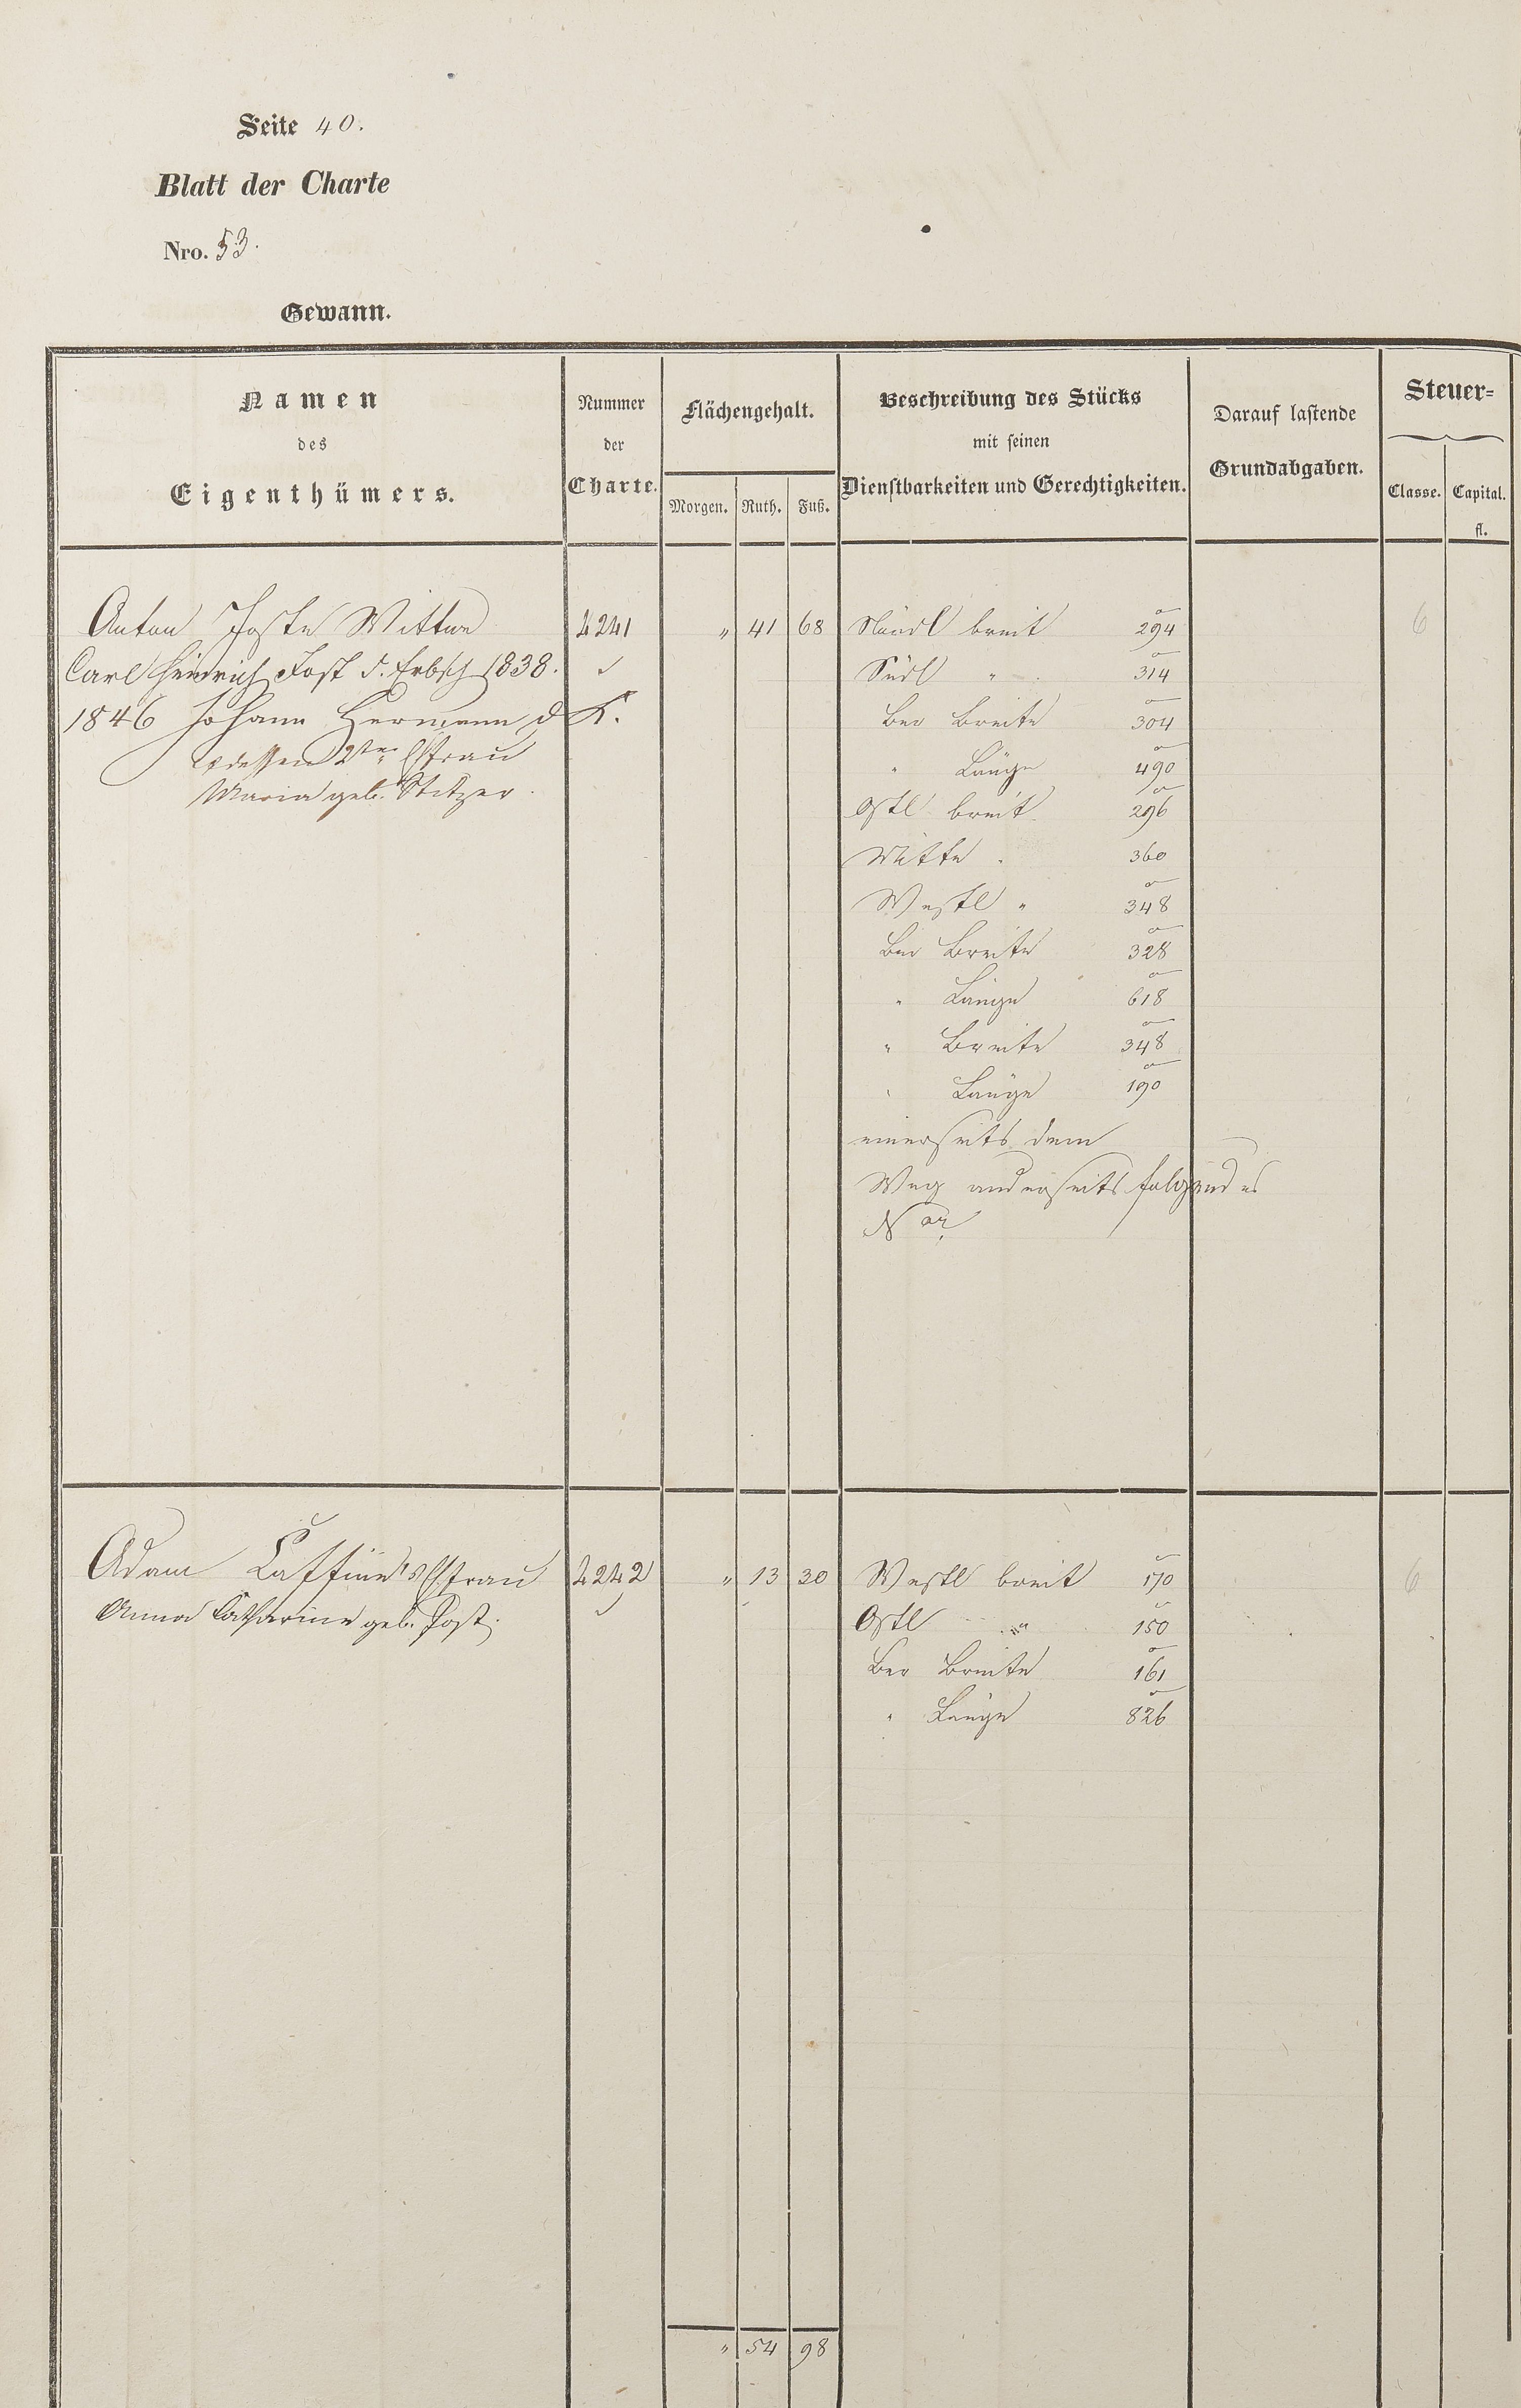 Seite 40.
Blatt der Charte
Nro. 53.
Gewann.
Namen
des
Eigenthümers.
Nummer
der
Charte.
Flächengehalt.
Morgen. Ruth. Fuß.
Beschreibung des Stücks
mit seinen
Dienstbarkeiten und Gerechtigkeiten.
Darauf lastende
Grundabgaben.
Steuer=
Classe. Capital.
fl.
Anton Jost's Wittwe 4241 " 41 68 Nördl breit 294 6
Carl Heinrich Jost d. Erbsch 1838. Südl " 314
1846 Johann Hermann d K. Ber Breite 304
dessen 2te Ehfrau " Länge 490
Maria geb. Stitzer. Ostl breit 296
Mitte . 360
Westl " 348
Ber Breite 328
" Länge 618
" Breite 348
" Länge 190
einerseits dem
Weg anderseits folgendes
Nor
Adam Ehfrau 4242 " 13 30 Westl breit 170 6
Anna Catharine geb. Jost. Ostl " 150
Ber Breite 161
" Länge 826
" 54 98